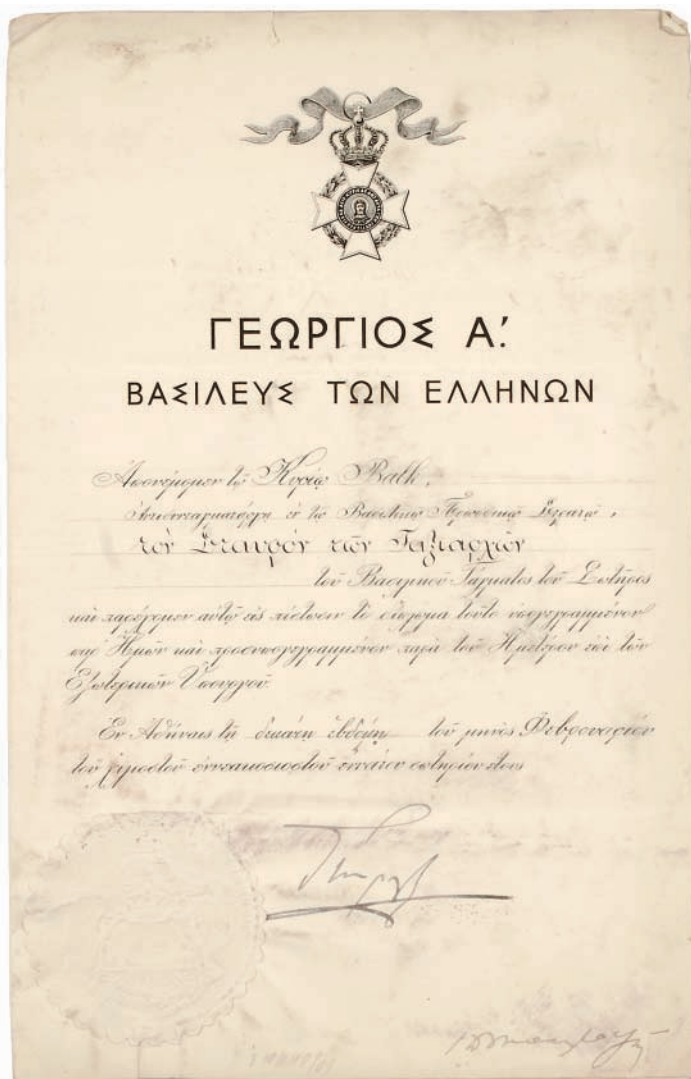 ΓΕΩΡΓΙΟΣ Α΄.
ΒΑΣΙΛΕΥΣ ΤΩΝ ΕΛΛΗΝΩΝ
Ἀπονέμομεν τῷ Κυρίῳ Balk,
Ἀντισυνταγματάρχῃ ἐν τῷ Βασιλικῷ Πρωσσικῷ Στρατῷ,
τὸν Σταυρὸν τῶν Ταξιαρχῶν
τοῦ Βασιλικοῦ Τάγματος τοῦ Σωτῆρος
καὶ παρέχομεν αὐτῷ εἰς πίστωσιν τὸ δίπλωμα τοῦτο ὑπογεγραμμένον
παρ' Ἡμῶν καὶ προσυπογεγραμμένον παρὰ τοῦ Ἡμετέρου ἐπὶ τῶν
Ἐξωτερικῶν Ὑπουργοῦ.
Ἐν Ἀθήναις τῇ δεκάτῃ ἑβδόμῃ τοῦ μηνὸς Φεβρουαρίου
τοῦ χιλιοστοῦ ἐννεακοσιοστοῦ ἐνάτου σωτηρίου ἔτους